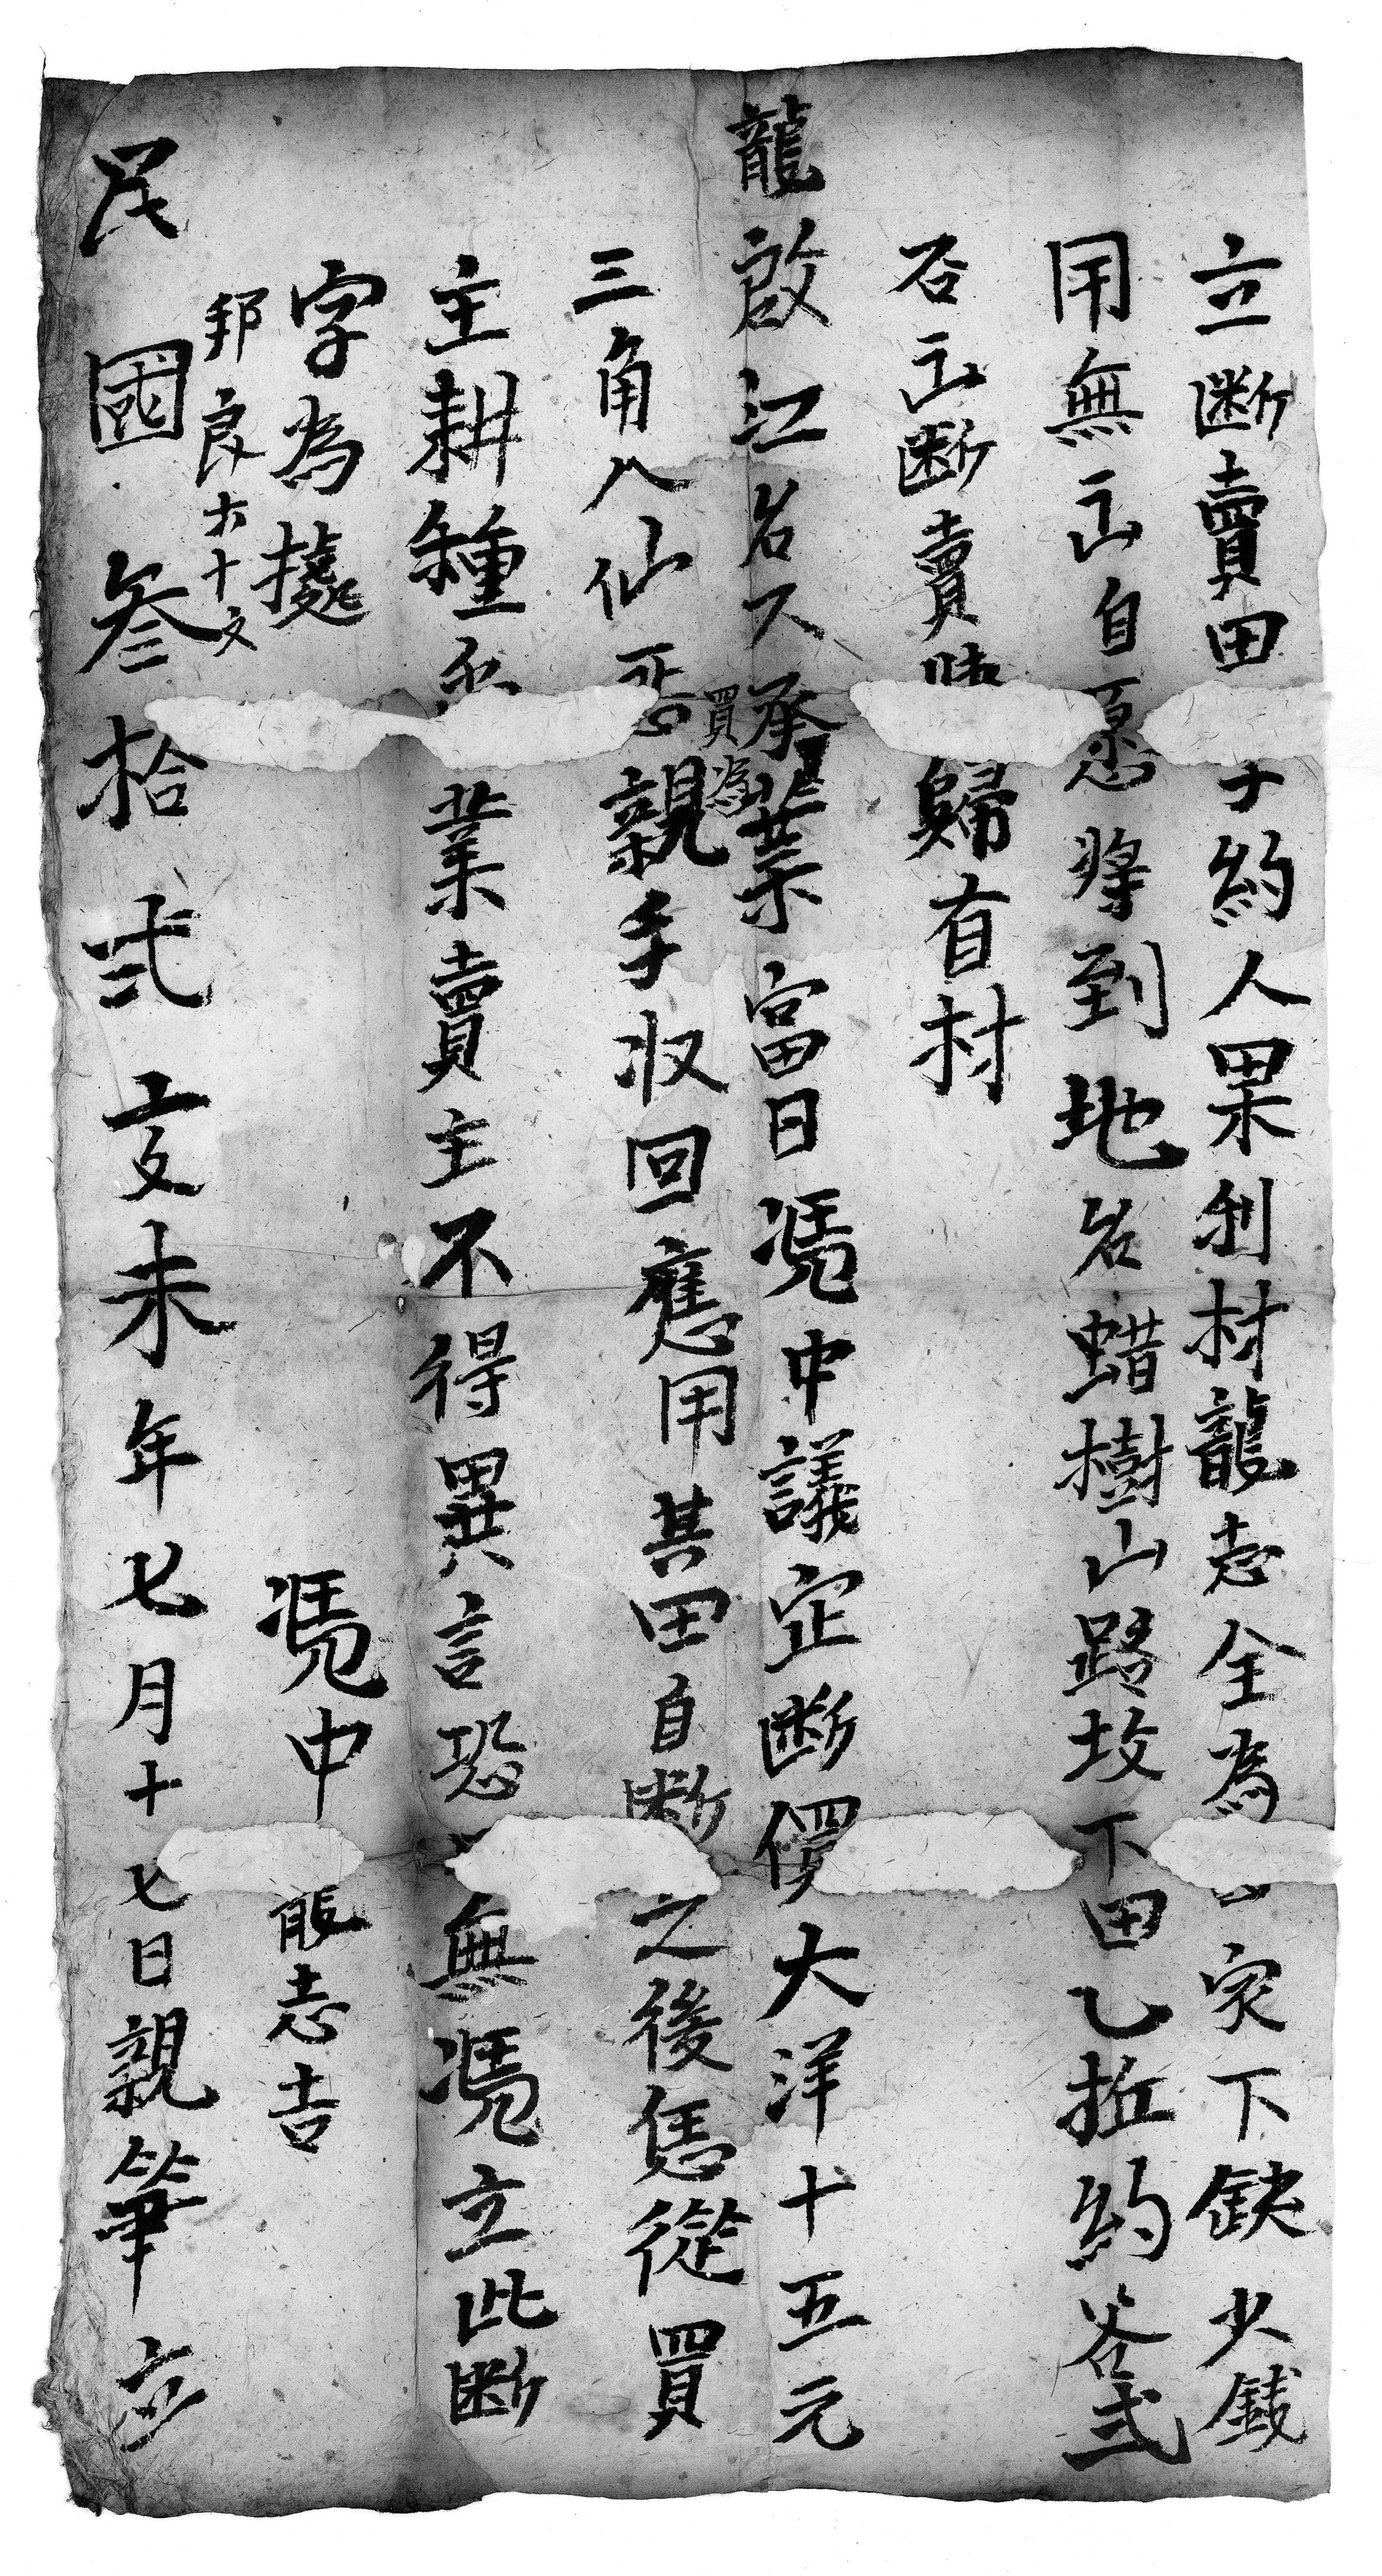 立断賣田字約人果利村龍志全為因家下缺少錢
用無出自愿將到地名蜡樹山路坟下田乙坵約谷弍
石正断賣 歸有村
龍啟江名下承買為業當日凴中議定断價大洋十五元
三角八仙 親手收回應用其田自断之後恁從買
主耕種 業賣主不得異言恐 無凴立此断
字為據
凴中 龍志吉
邦良六十文
民國叁拾弍癸未年七月十七日親筆立